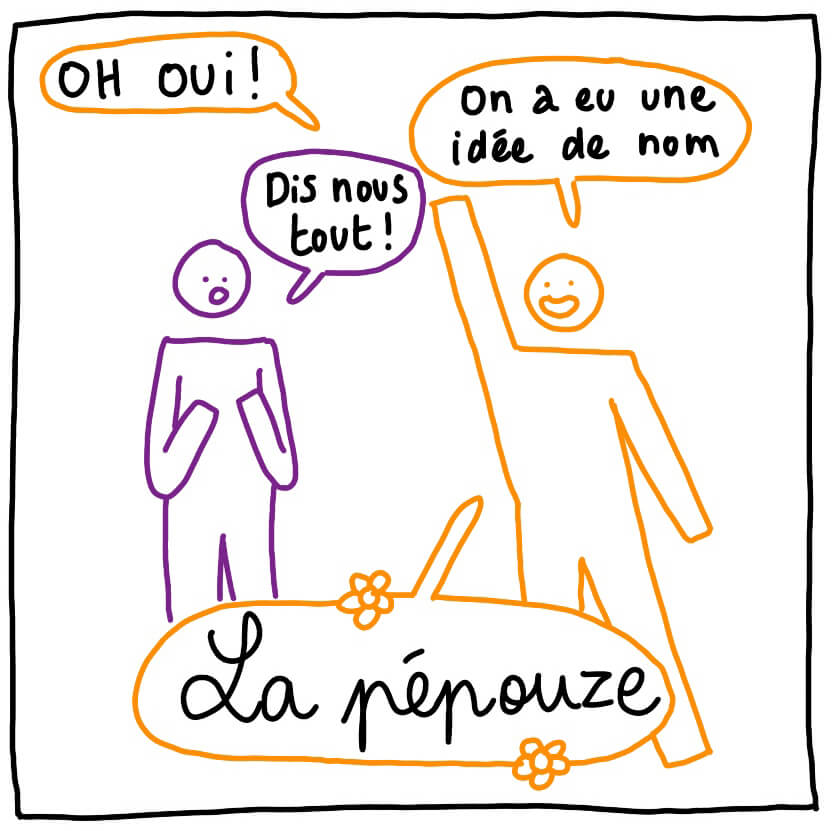 OH OUI!
On a eu une
idée de nom
Dis nous
tout!
La pépouze